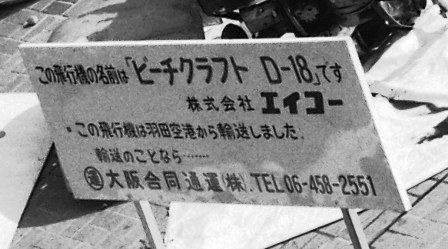 この飛行機の名前は「ビーチクラフト D-18」です
株式会社 エイコー
・この飛行機は羽田空港から輸送しました.
輸送のことなら………
㊝大阪合同通運(株). TEL.06-458-2551